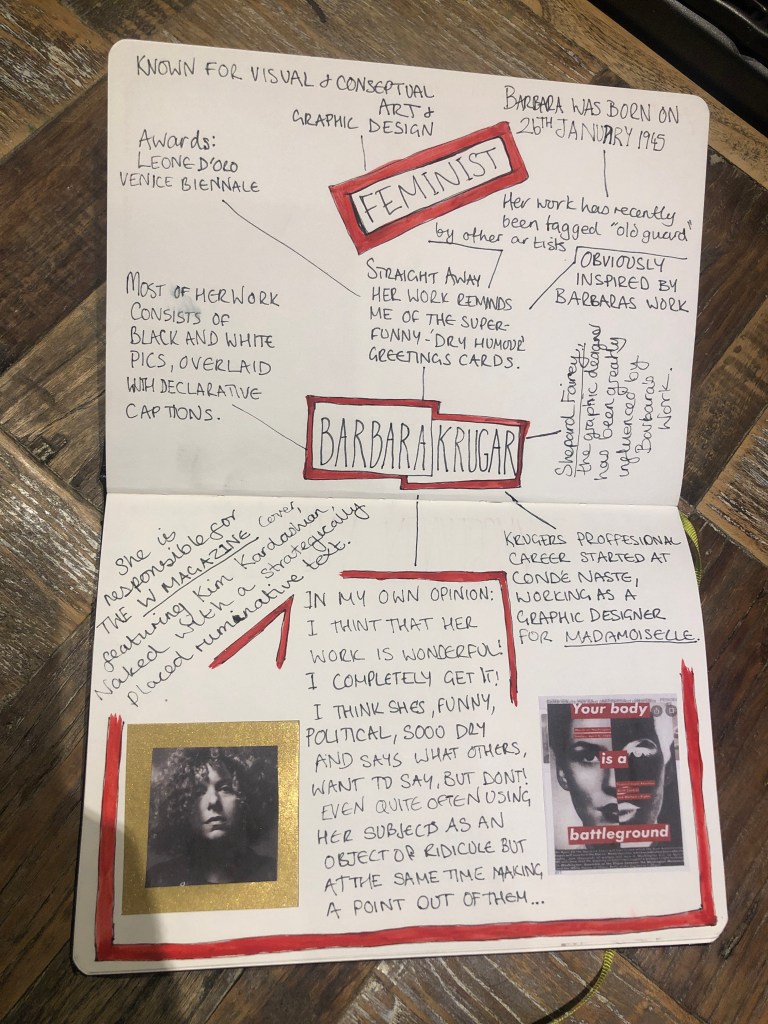 KNOWN FOR VISUAL & CONSEPTUAL
ART &
GRAPHIC DESIGN
BARBARA WAS BORN ON
26TH JANUARY 1945
Awards:
LEONE D'ORO
VENICE BIENNALE
FEMINIST
Her work has recently
been tagged "old guard"
by other artists
OBVIOUSLY
INSPIRED BY
BARBARAS WORK
STRAIGHT AWAY
HER WORK REMINDS
ME OF THE SUPER-
FUNNY-'DRY HUMOUR'
GREETINGS CARDS.
MOST OF HER WORK
CONSISTS OF
BLACK AND WHITE
PICS, OVERLAID
WITH DECLARATIVE
CAPTIONS.
Shepard Fairey,
the graphic designer
has been greatly
influenced by
Barbara's
Work.
BARBARA KRUGAR
She is
responsible for
THE W MAGAZINE cover,
featuring Kim Kardashian,
Naked with a strategically
placed rumanative text.
KRUGERS PROFFESIONAL
CAREER STARTED AT
CONDE NASTE,
WORKING AS A
GRAPHIC DESIGNER
FOR MADAMOISELLE.
IN MY OWN OPINION:
I THINT THAT HER
WORK IS WONDERFUL!
I COMPLETELY GET IT!
I THINK SHES, FUNNY,
POLITICAL, SOOO DRY
AND SAYS WHAT OTHERS,
WANT TO SAY, BUT DONT!
EVEN QUITE OFTEN USING
HER SUBJECTS AS AN
OBJECT OF RIDICULE BUT
AT THE SAME TIME MAKING
A POINT OUT OF THEM...
Your body
is a
battleground